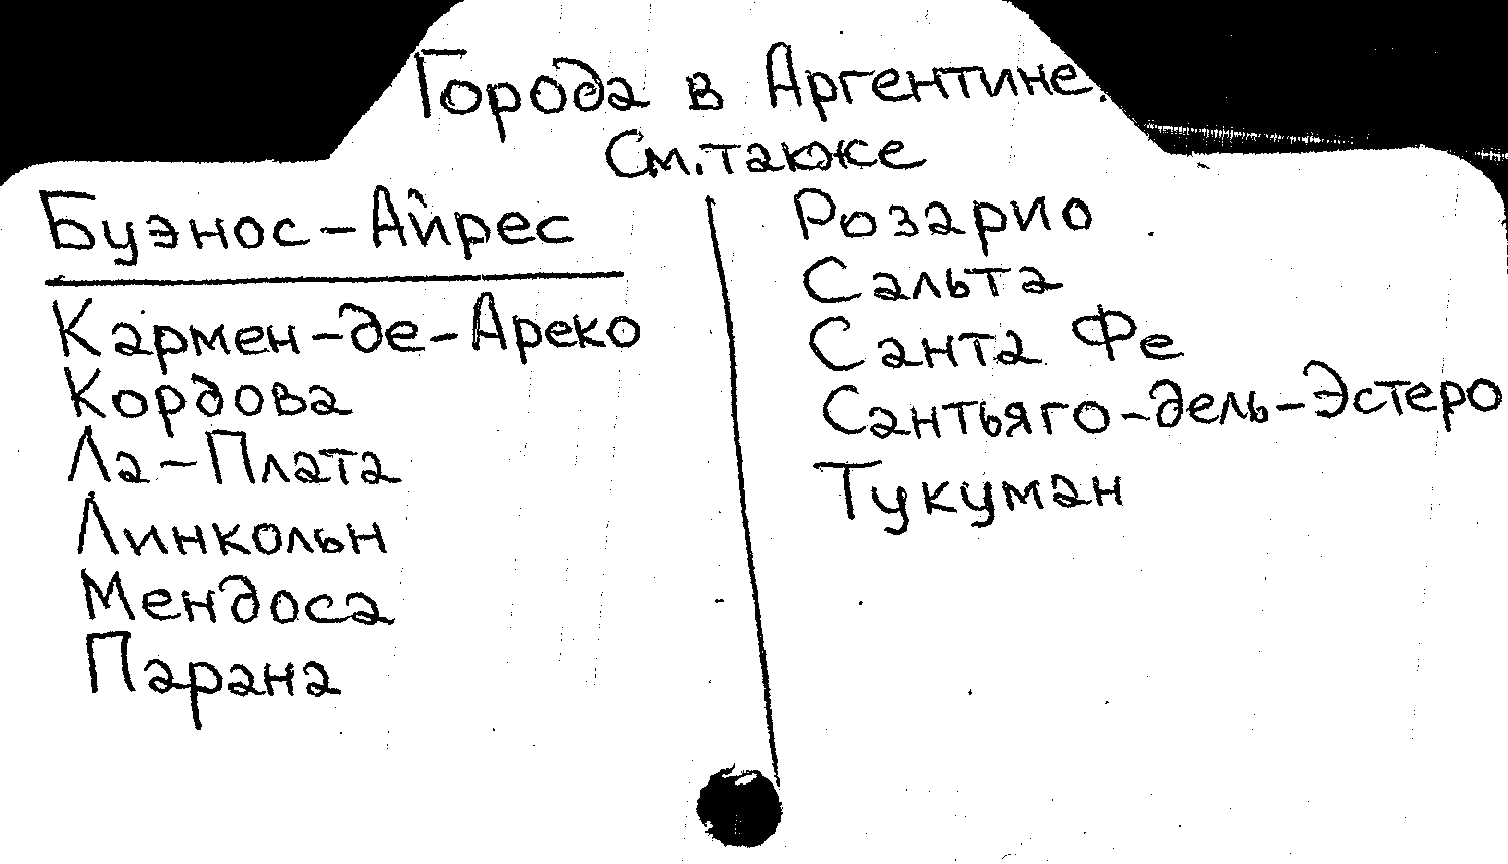 Города в Аргентине.
См. также
Буэнос-Айрес
Кармен-де-Ареко
Кордова
Ла-Плата
Линкольн
Мендоса
Парана
Розарио
Сальта
Санта Фе
Сантьяго-дель-Эстеро
Тукуман